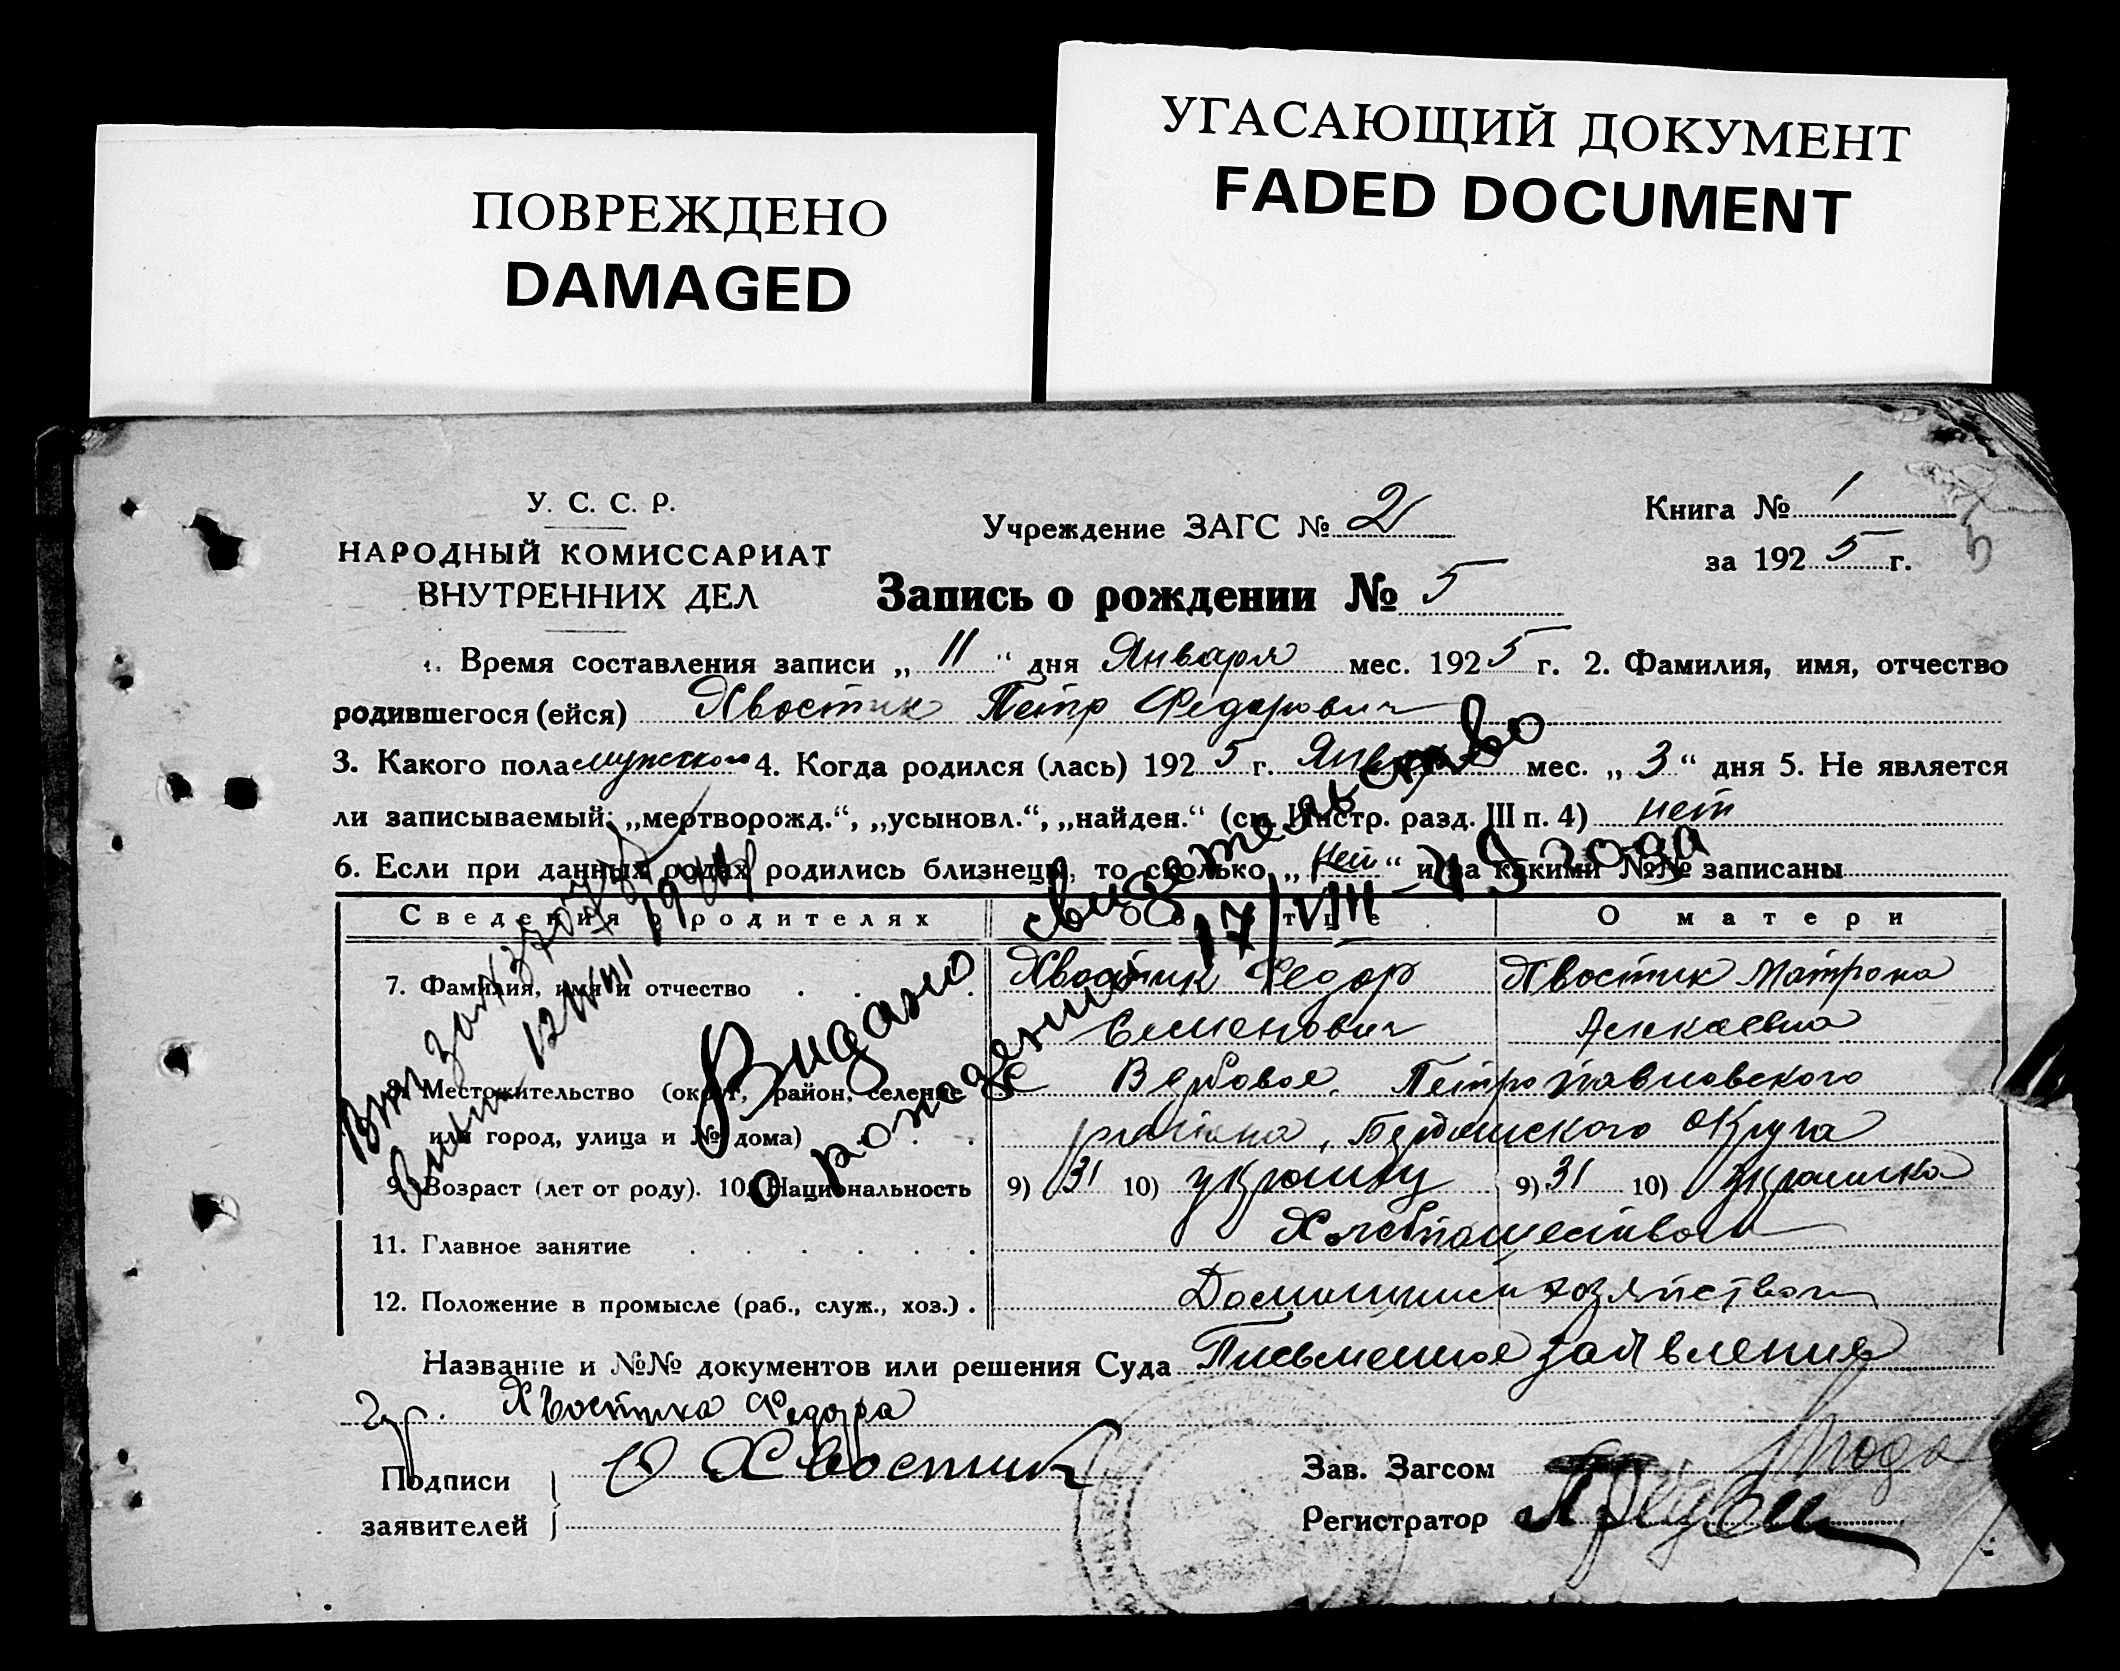 ПОВРЕЖДЕНО
DAMAGED
УГАСАЮЩИЙ ДОКУМЕНТ
FADED DOCUMENT
У. С. С. Р.
НАРОДНЫЙ КОМИССАРИАТ
ВНУТРЕННИХ ДЕЛ
Учреждение ЗАГС № 2
Книга № 1
за 1925 г.
5
Запись о рождении № 5
1. Время составления записи „ 11 “ дня Января мес. 1925 г. 2. Фамилия, имя, отчество
родившегося (ейся) Хвостик Петр Федорович
3. Какого пола мужского 4. Когда родился (лась) 1925 г. Января мес. „ 3 “ дня 5. Не является
ли записываемый: „мертворожд.“, „усыновл.“, „найден.“ (см. Инстр. разд. III п. 4) нет
6. Если при данных родах родились близнецы, то сколько „ нет “ и за какими №№ записаны
Сведения о родителях Об отце О матери
7. Фамилия, имя и отчество Хвостик Федор Хвостик Матрона
Семенович
8. Местожительство (округ, район, селение С Вербовое, Петропавловского
или город, улица и № дома) района, Бердянского Округа
9. Возраст (лет от роду). 10. Национальность 9) 31 10) 9) 31 10) украинка
11. Главное занятие Хлебопашеством
12. Положение в промысле (раб., служ., хоз.) Домашним хозяйством
Название и №№ документов или решения Суда Письменное заявление
гр. Хвостика Федора
Подписи заявителей Ф Хвостик
Зав. Загсом
Регистратор
Видано свидетельство
о рождении 17/VIII-45 года